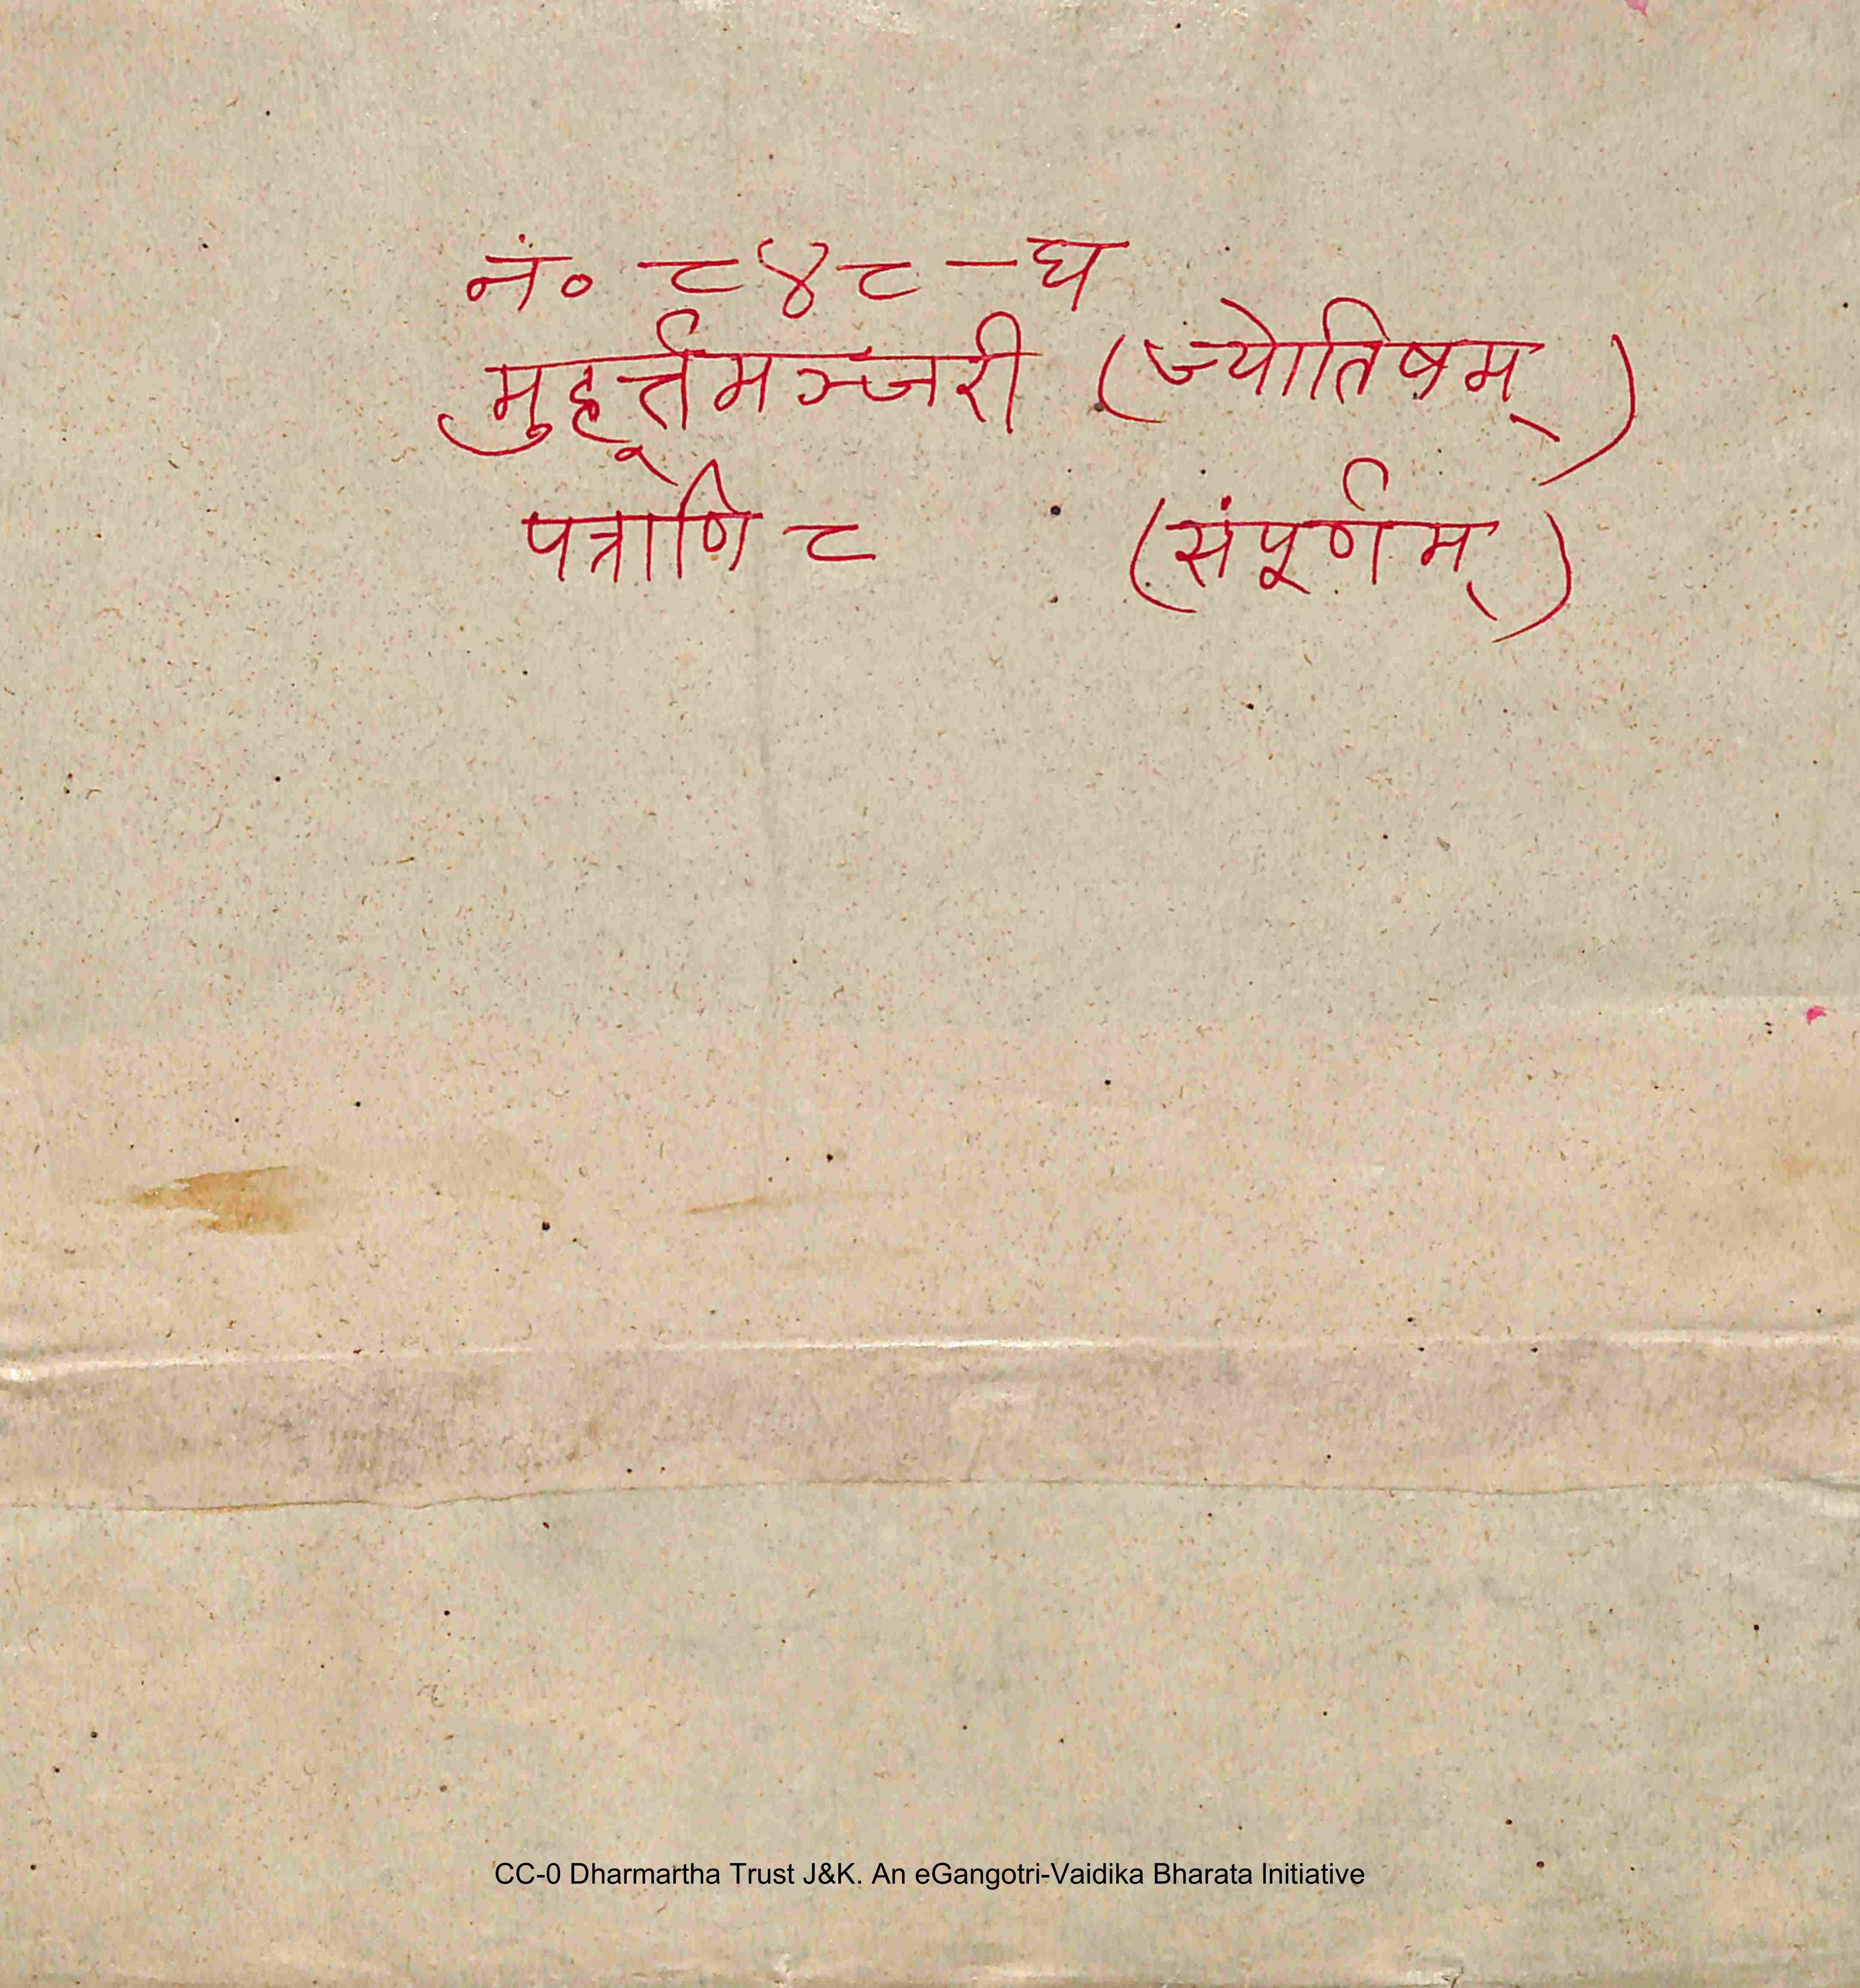 नं० ८४८ - घ
मुहूर्त्तमञ्जरी (ज्योतिषम्)
पत्राणि ८ (संपूर्णम्)
CC-0 Dharmartha Trust J&K. An eGangotri-Vaidika Bharata Initiative